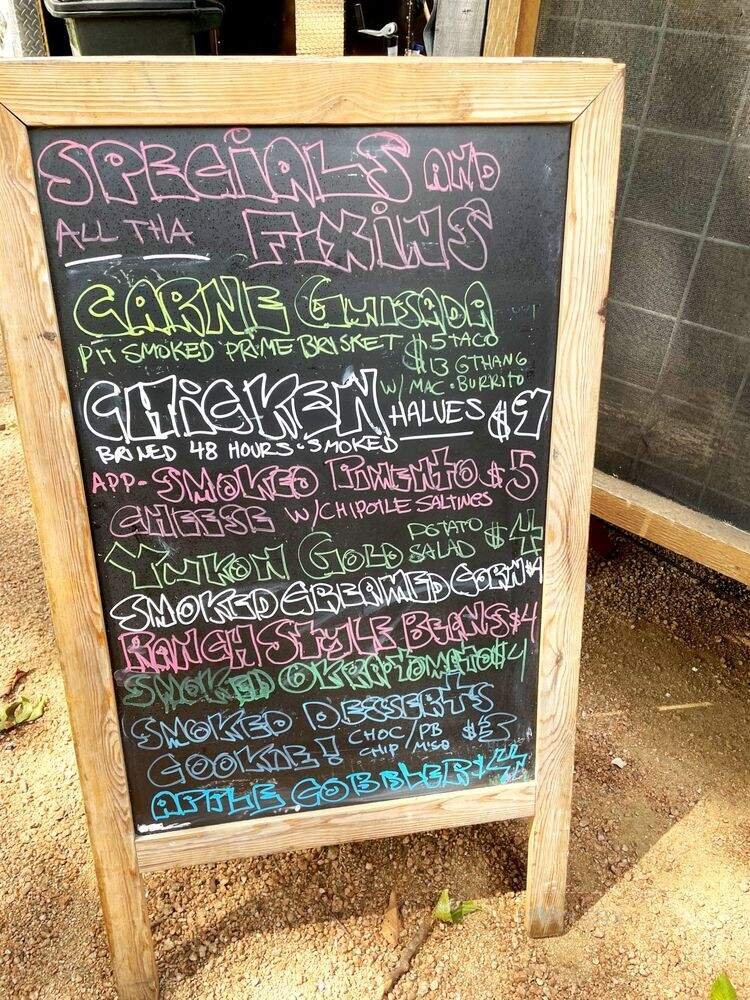 SPECIALS AND
ALL THA FIXINS
CARNE GUISADA
PIT SMOKED PRIME BRISKET $5 TACO
$13 GTHANG
W/ MAC · BURRITO
CHICKEN HALVES $9
BRINED 48 HOURS · SMOKED
APP - SMOKED PIMENTO $5
CHEESE W/ CHIPOTLE SALTINES
YUKON GOLD POTATO SALAD $4
SMOKED CREAMED CORN $4
RANCH STYLE BEANS $4
SMOKED OKRA TOMATO $4
SMOKED DESSERTS
COOKIE! CHOC CHIP / PB MISO $3
APPLE COBBLER $4